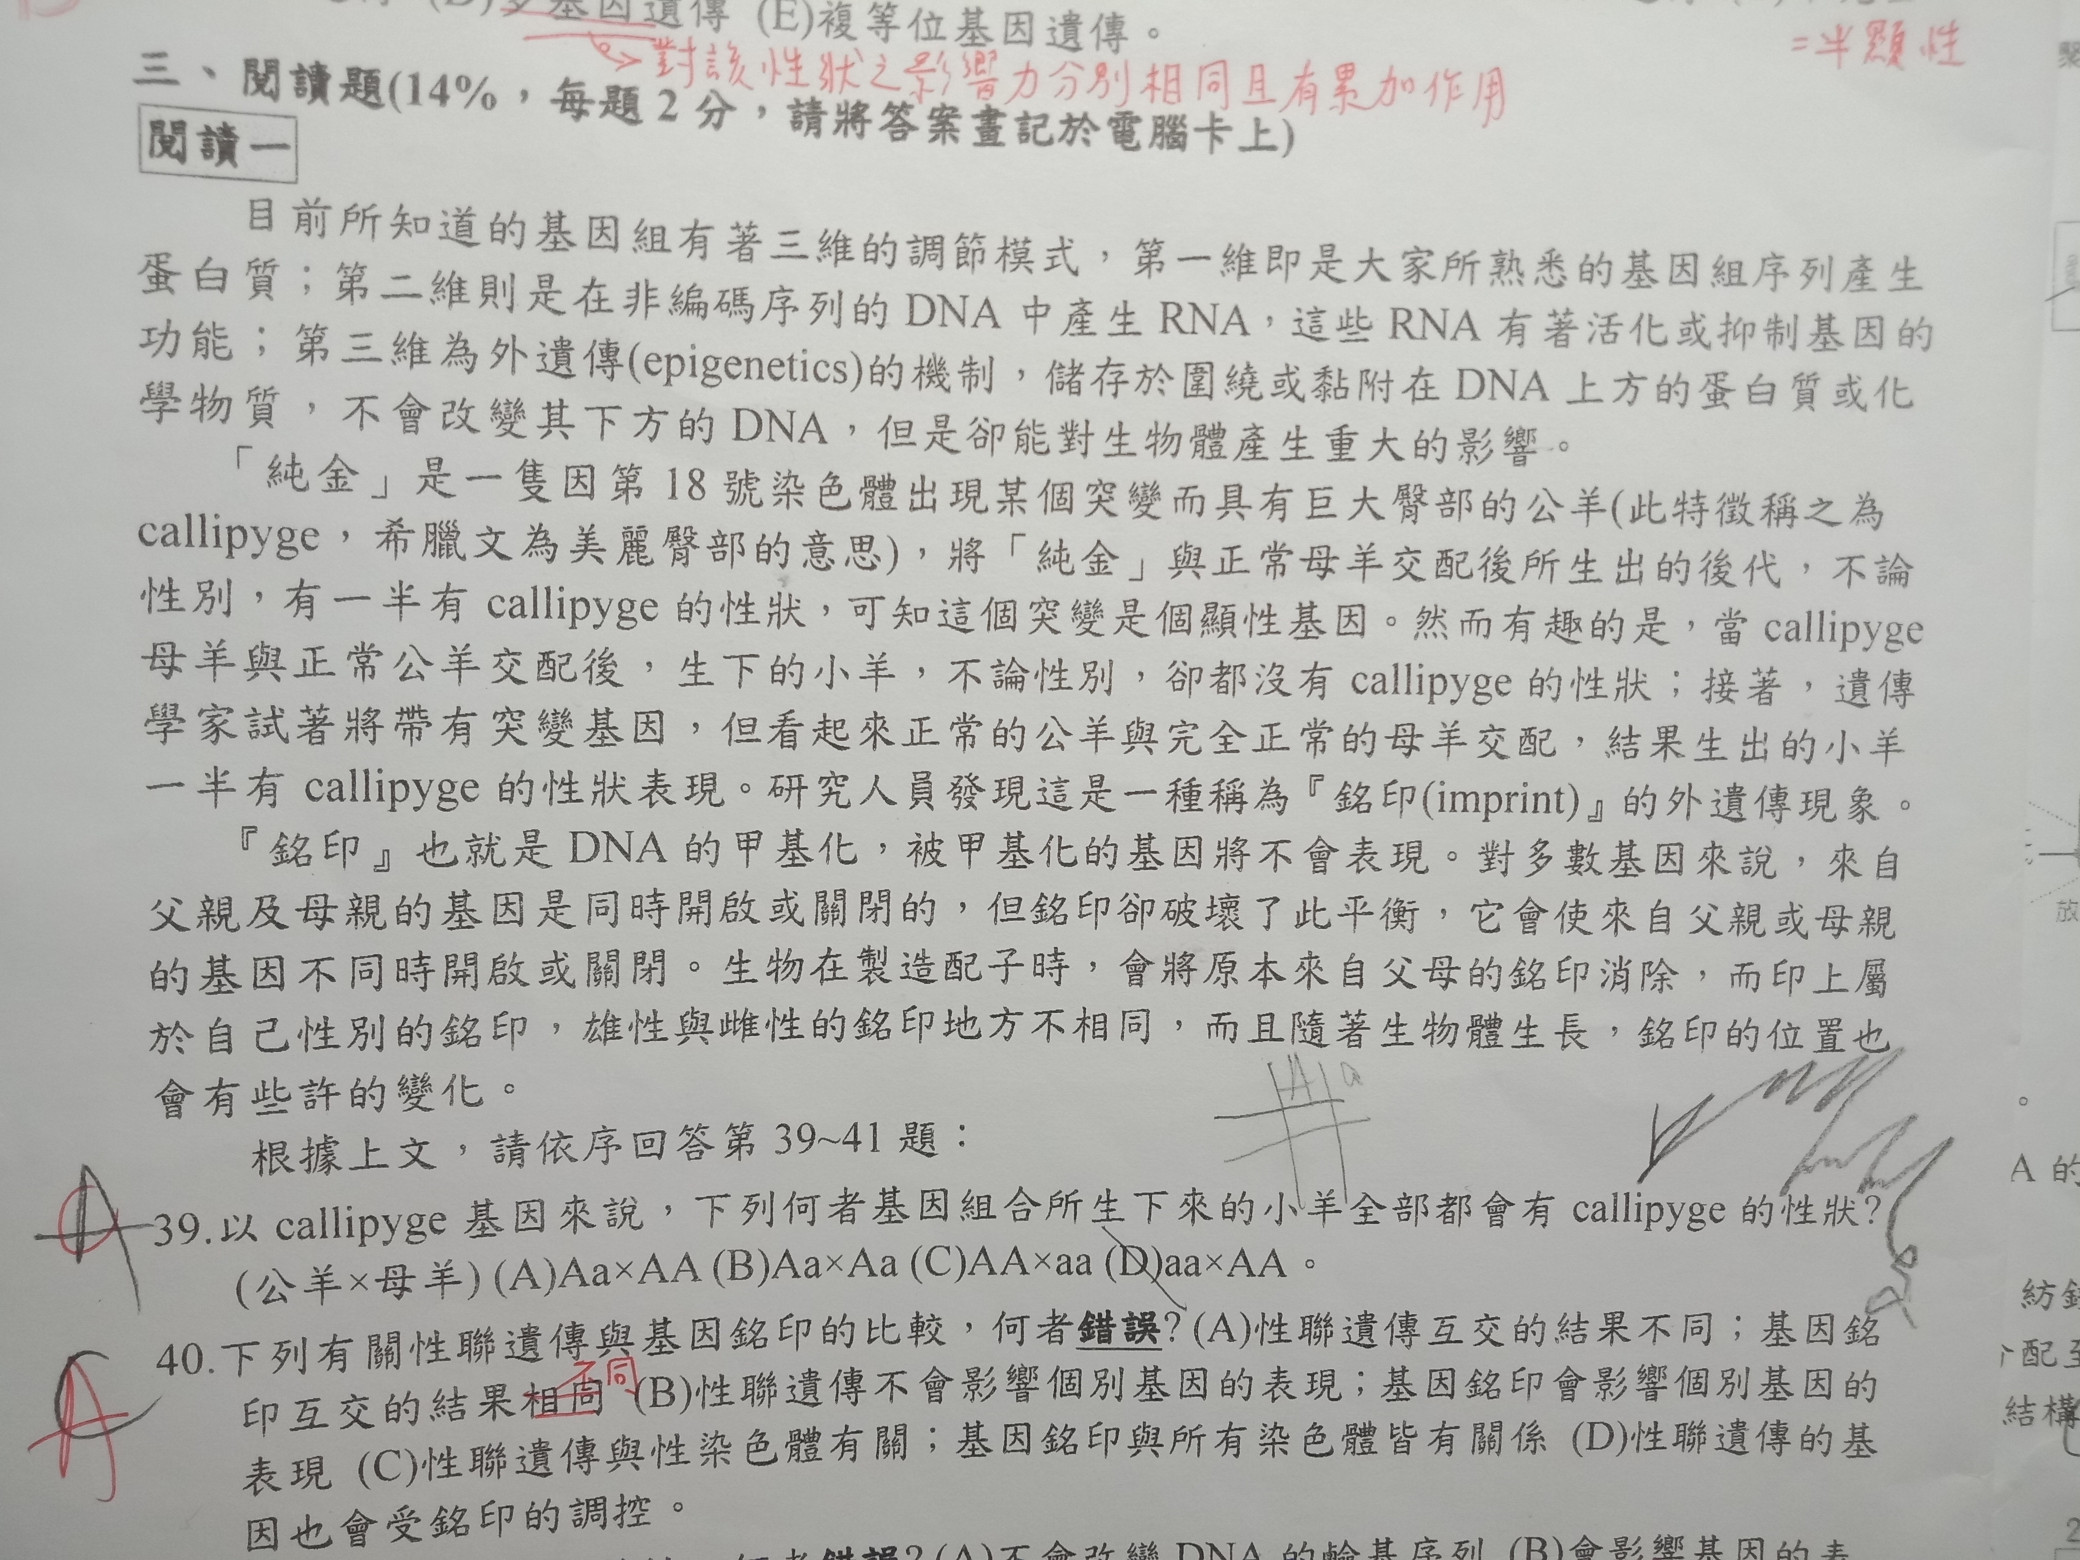 (D)多基因遺傳 (E)複等位基因遺傳。
=半顯性
對該性狀之影響力分別相同且有累加作用
三、閱讀題(14%，每題2分，請將答案畫記於電腦卡上)
閱讀一
目前所知道的基因組有著三維的調節模式，第一維即是大家所熟悉的基因組序列產生
蛋白質；第二維則是在非編碼序列的 DNA 中產生 RNA，這些 RNA 有著活化或抑制基因的
功能；第三維為外遺傳(epigenetics)的機制，儲存於圍繞或黏附在 DNA 上方的蛋白質或化
學物質，不會改變其下方的 DNA，但是卻能對生物體產生重大的影響。
「純金」是一隻因第 18 號染色體出現某個突變而具有巨大臀部的公羊(此特徵稱之為
callipyge，希臘文為美麗臀部的意思)，將「純金」與正常母羊交配後所生出的後代，不論
性別，有一半有 callipyge 的性狀，可知這個突變是個顯性基因。然而有趣的是，當 callipyge
母羊與正常公羊交配後，生下的小羊，不論性別，卻都沒有 callipyge 的性狀；接著，遺傳
學家試著將帶有突變基因，但看起來正常的公羊與完全正常的母羊交配，結果生出的小羊
一半有 callipyge 的性狀表現。研究人員發現這是一種稱為『銘印(imprint)』的外遺傳現象。
『銘印』也就是 DNA 的甲基化，被甲基化的基因將不會表現。對多數基因來說，來自
父親及母親的基因是同時開啟或關閉的，但銘印卻破壞了此平衡，它會使來自父親或母親
的基因不同時開啟或關閉。生物在製造配子時，會將原本來自父母的銘印消除，而印上屬
於自己性別的銘印，雄性與雌性的銘印地方不相同，而且隨著生物體生長，銘印的位置也
會有些許的變化。
A a
根據上文，請依序回答第 39~41 題：
A
39.以 callipyge 基因來說，下列何者基因組合所生下來的小羊全部都會有 callipyge 的性狀?
(公羊×母羊) (A)Aa×AA (B)Aa×Aa (C)AA×aa (D)aa×AA。
A
40.下列有關性聯遺傳與基因銘印的比較，何者錯誤? (A)性聯遺傳互交的結果不同；基因銘
不同
印互交的結果相同 (B)性聯遺傳不會影響個別基因的表現；基因銘印會影響個別基因的
表現 (C)性聯遺傳與性染色體有關；基因銘印與所有染色體皆有關係 (D)性聯遺傳的基
因也會受銘印的調控。
錯誤? (A)不會改變 DNA 的鹼基序列 (B)會影響基因的表
放
A 的
紡
配至
結構